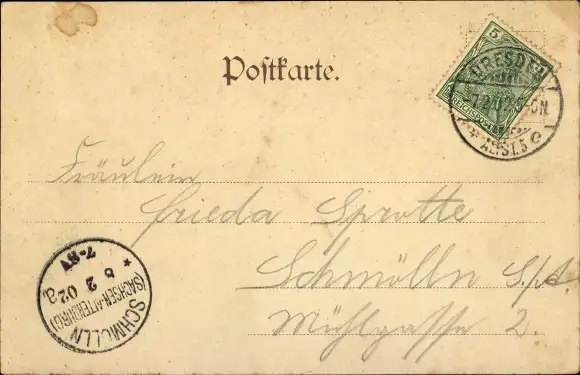 Postkarte.
5
REICHSPOST
DRESDEN
7.2.02.5-6N.
ALTST.5 c
Fräulein
Frieda Sprotte
Schmölln S./A.
Mühlgasse 2.
SCHMÖLLN
(SACHSEN-ALTENBURG)
8 2 02
7-8V